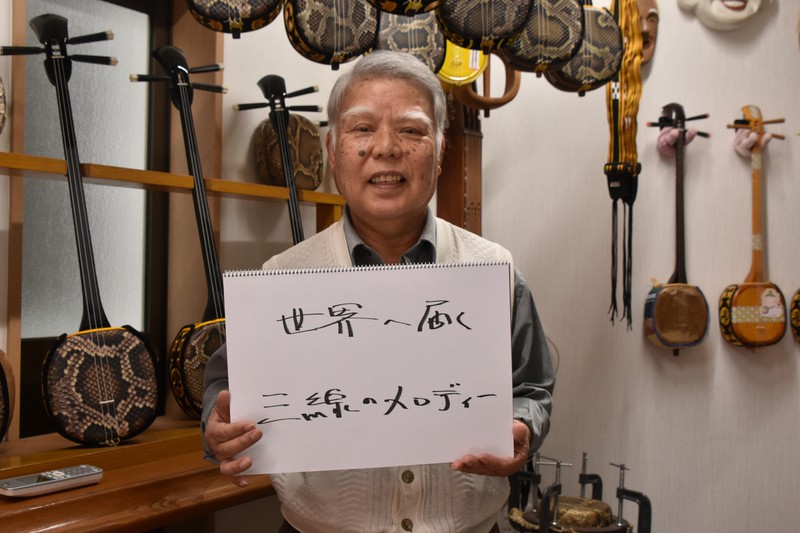 世界へ届く
三線のメロディー